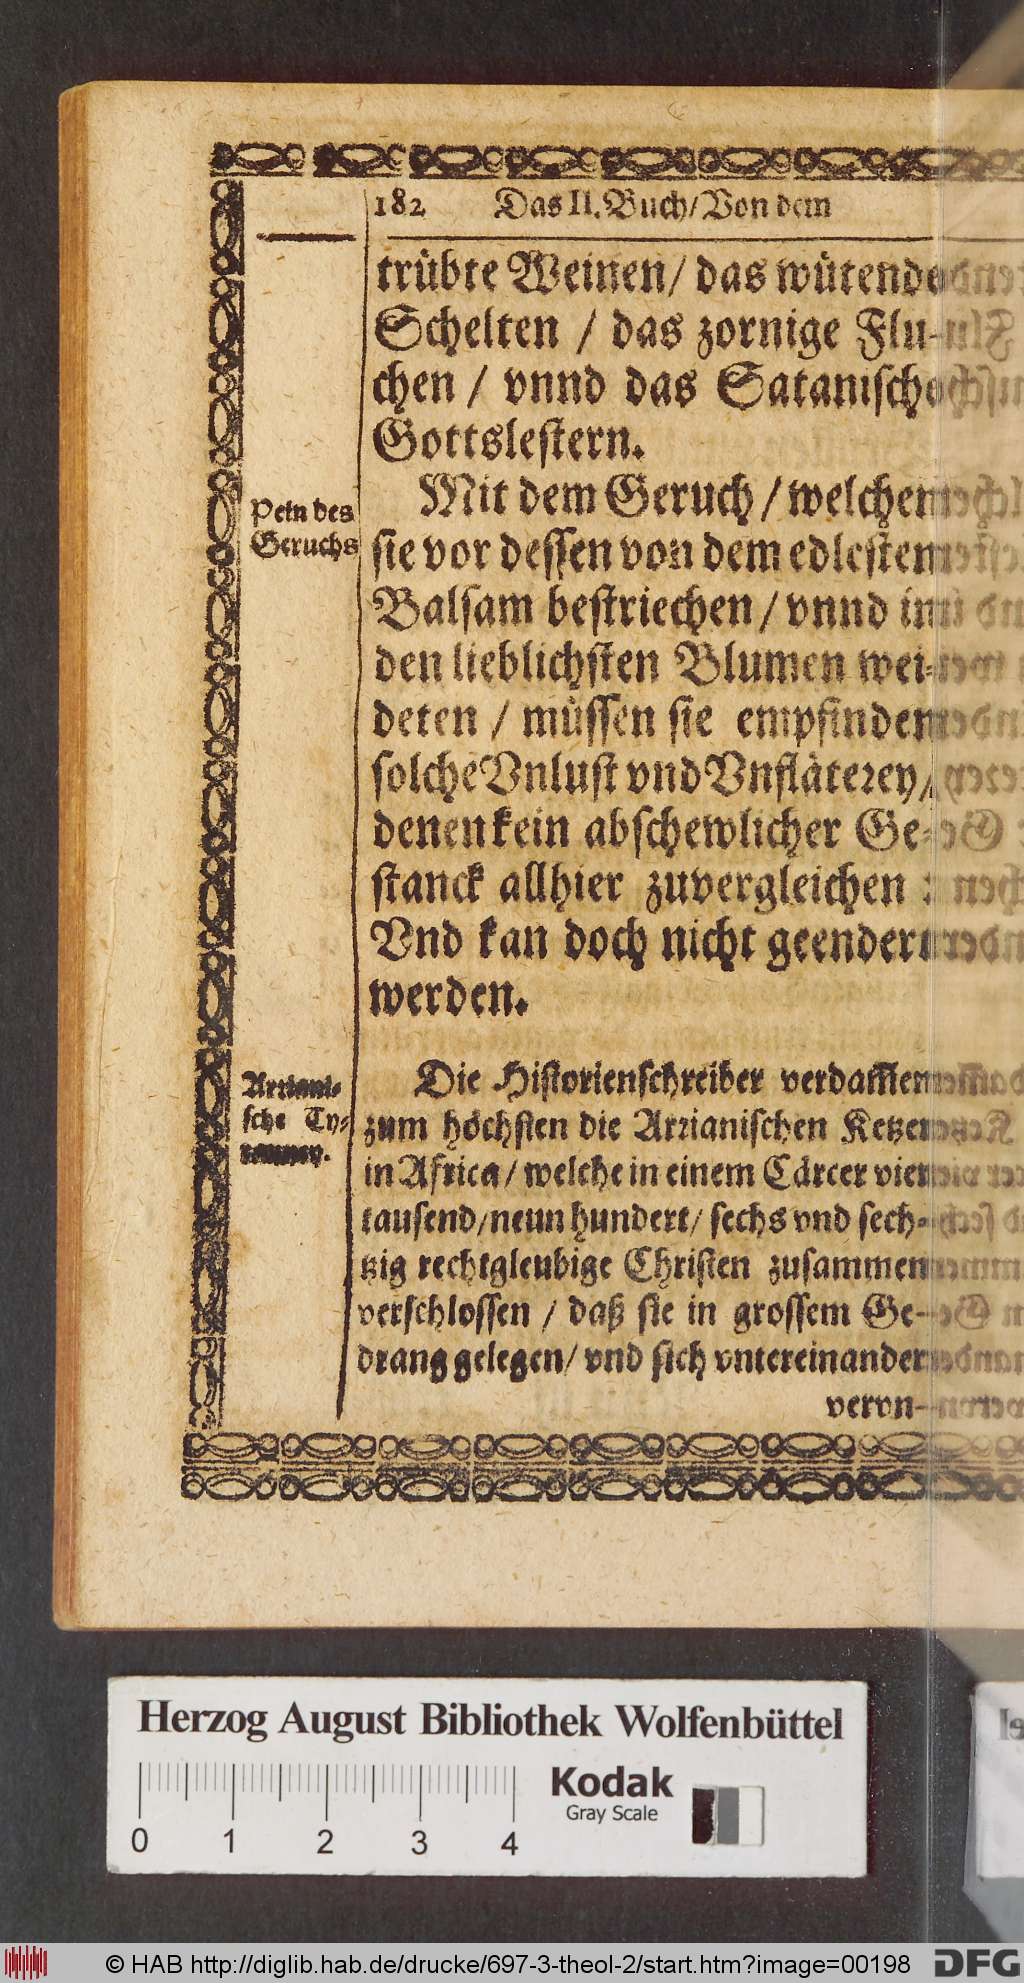 182 Das II. Buch/ Von dem
trübte Weinen/ das wütende
Schelten / das zornige Flu-
chen / vnnd das Satanische
Gottslestern.
Pein des
Geruchs
Mit dem Geruch / welchem
sie vor dessen von dem edlestem
Balsam bestriechen / vnnd im̃
den lieblichsten Blumen wei-
deten / müssen sie empfinden
solche Vnlust vnd Vnfläterey/
denen kein abschewlicher Ge-
stanck allhier zuvergleichen :
Vnd kan doch nicht geendert
werden.
Arriani-
sche Ty-
ranney.
Die Historienschreiber verdam̃en
zum höchsten die Arrianischen Ketzer
in Africa / welche in einem Cärcer vier
tausend/ neun hundert/ sechs vnd sech-
tzig rechtgleubige Christen zusammen
verschlossen / daß sie in grossem Ge-
drang gelegen/ vnd sich vntereinander
vervn-
Herzog August Bibliothek Wolfenbüttel
Kodak
Gray Scale
0 1 2 3 4
© HAB http://diglib.hab.de/drucke/697-3-theol-2/start.htm?image=00198 DFG